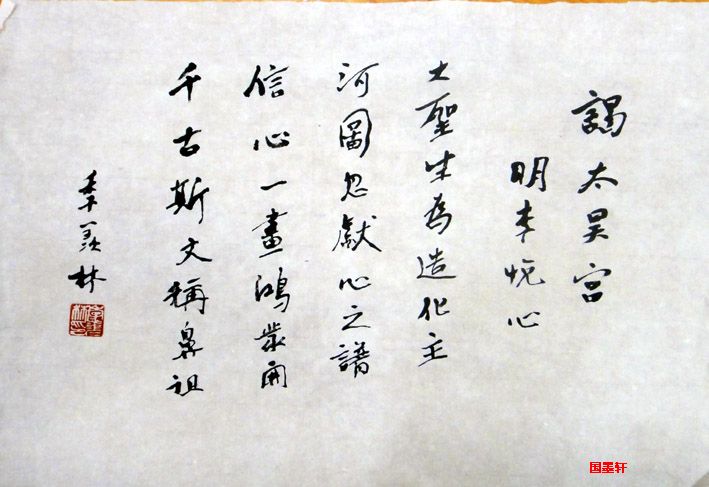 謁太昊宮
明李悅心
大聖生為造化主
河圖忽獻心之譜
信心一畫鴻濛開
千古斯文稱鼻祖
季羨林
国墨轩